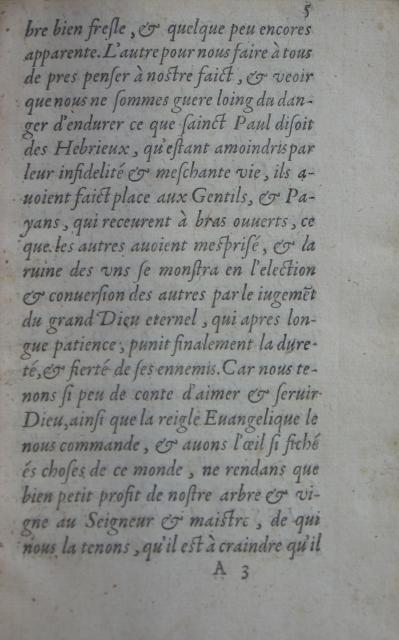 5
bre bien fresle, & quelque peu encores
apparente. L'autre pour nous faire à tous
de pres penser à nostre faict, & veoir
que nous ne sommes guere loing du dan-
ger d'endurer ce que sainct Paul disoit
des Hebrieux, qu'estant amoindris par
leur infidelité & meschante vie, ils a-
uoient faict place aux Gentils, & Pa-
yans, qui receurent à bras ouuerts, ce
que les autres auoient mesprisé, & la
ruine des vns se monstra en l'election
& conuersion des autres par le iugemẽt
du grand Dieu eternel, qui apres lon-
gue patience, punit finalement la dure-
té, & fierté de ses ennemis. Car nous te-
nons si peu de conte d'aimer & seruir
Dieu, ainsi que la reigle Euangelique le
nous commande, & auons l'œil si fiché
és choses de ce monde, ne rendans que
bien petit profit de nostre arbre & vi-
gne au Seigneur & maistre, de qui
nous la tenons, qu'il est à craindre qu'il
A 3